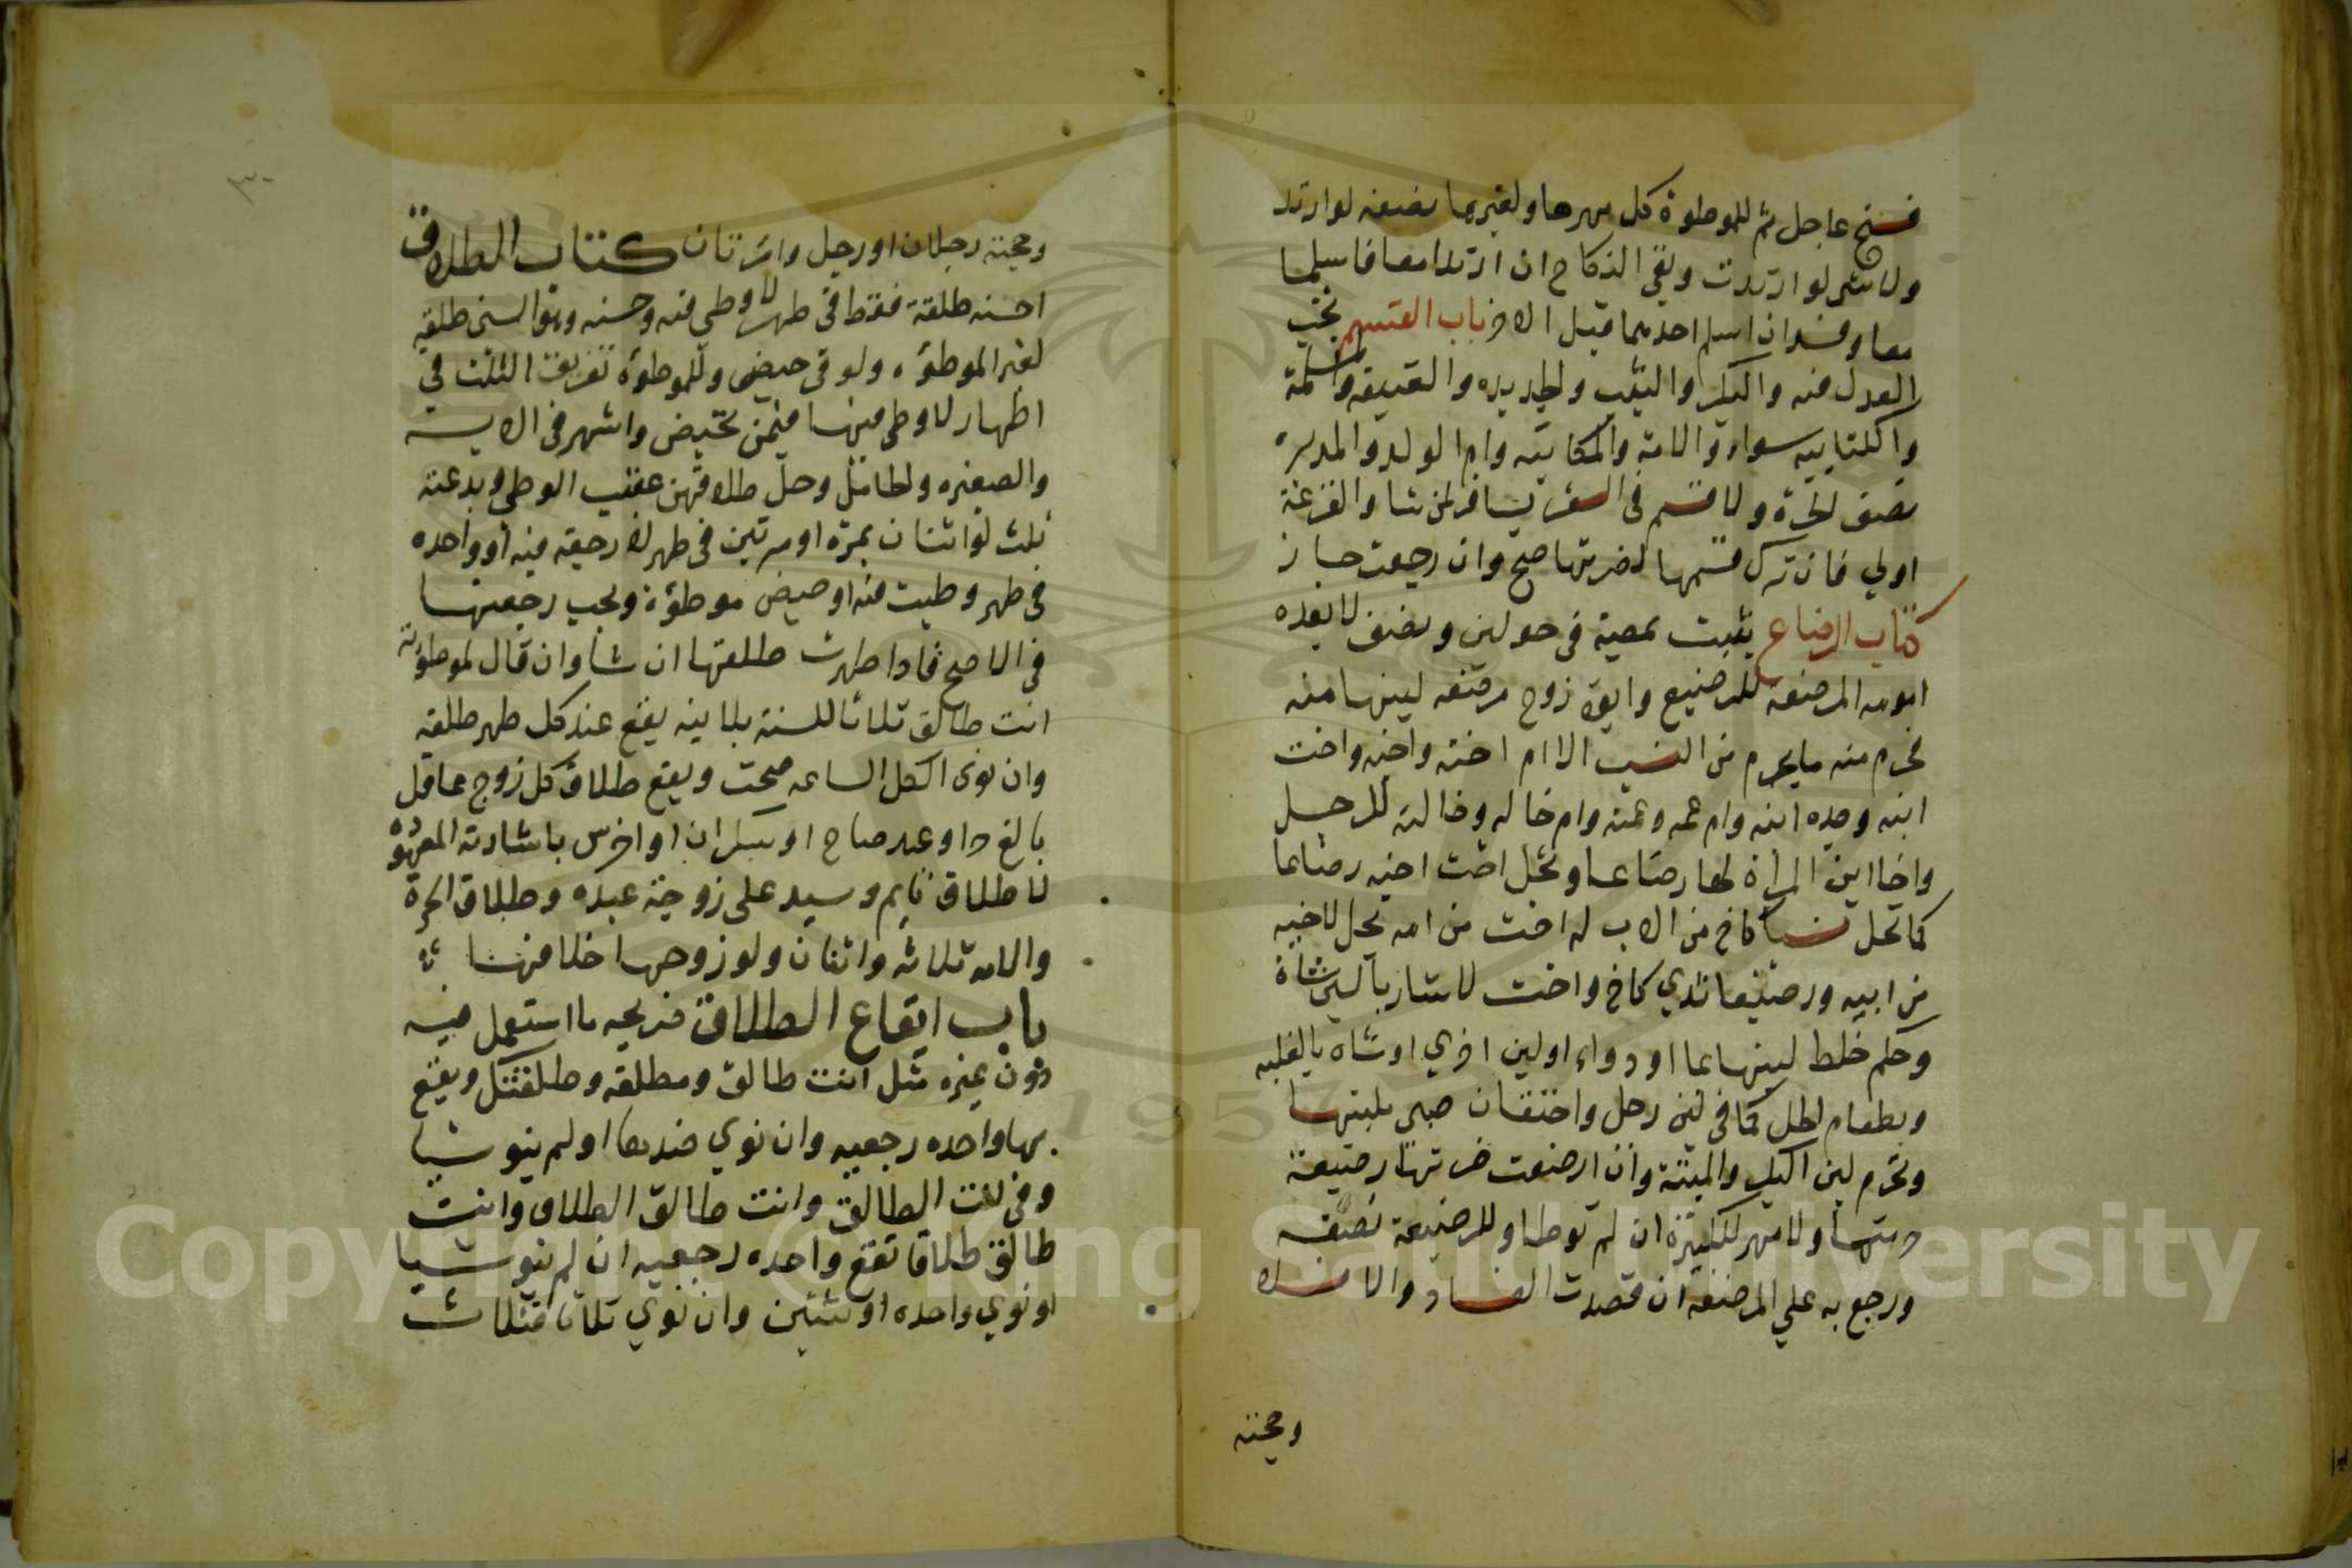 فسخ عاجل ثم للموطوة كل مهرها ولغيرها نصفه لو ارتد
ولا شي لو ارتدت وبقي النكاح ان ارتدا معا فاسلما
معا وفسد ان اسلم احدهما قبل الاخر باب القسم يجب
العدل فيه والبكر والثيب والجديده والعتيقه والمسلمة
والكتابيه سواء والامة والمكاتبه وام الولد والمدبرة
نصف الحرة ولا قسم في السفر يسافر بمن شا والقرعة
اولي فان تركت قسمها لضرتها صح وان رجعت جاز
كتاب الرضاع يثبت بمصة في حولين ونصف لا بعده
امومه المرضعة للرضيع وابوة زوج مرضعه لبنها منه
فيحرم منه ما يحرم من النسب الا ام اخته واخيه واخت
ابنه وجده ابنه وام عمه وعمته وام خاله وخالته للرجل
واخا ابن المرأة لها رضاعا وتحل اخت اخيه رضاعا
كما تحل نسبا كاخ من الاب له اخت من امه تحل لاخيه
من ابيه ورضيعا ثدي كاخ واخت لا شاربا لبن شاة
وحكم خلط لبنها بما او دواء او لبن اخري او شاه بالغلبه
وبطعام الحل كما في لبن رجل واحتقان صبي بلبنها
وتحرم لبن البكر والميتة وان ارضعت ضرتها رضيعة
حرمتها ولا مهر للكبيرة ان لم توطا وللرضيعة نصفه
ورجع به علي المرضعة ان قصدت الفساد والا فلا
وحجته
٣٠
وحجته رجلان او رجل وامرتان كتاب الطلاق
احسنه طلقة فقط في طهر لا وطي فيه وحسنه وهو السني طلقة
لغير الموطؤه ولو في حيض وللموطوة تفريق الثلث في
اطهار لا وطي فيها فيمن تحيض واشهر في الايسه
والصغيره والحامل وحل طلاقهن عقيب الوطي وبدعته
ثلث او اثنان بمرة او مرتين في طهر لا رجعه فيه او واحده
في طهر وطيت فيه او حيض موطؤة ويجب رجعتها
في الاصح فاذا طهرت طلقها ان شأ وان قال لموطؤته
انت طالق ثلاثا للسنة بلا نيه يقع عند كل طهر طلقه
وان نوي الكل الساعه صحت ويقع طلاق كل زوج عاقل
بالغ حر او عبد صاح او سكران او اخرس باشارته المعهودة
لا طلاق نايم وسيد علي زوجة عبده وطلاق الحرة
والامه ثلاثه واثنان ولو زوجها خلافهنا
باب ايقاع الطلاق صريحه ما استعمل فيه
دون غيره مثل انت طالق ومطلقه وطلقتك ويقع
بها واحده رجعيه وان نوي ضدها او لم ينو شيا
وفي انت الطالق وانت طالق الطلاق وانت
طالق طلاقا تقع واحده رجعيه ان لم ينو شيا
او نوي واحده او ثنتين وان نوي ثلاثا فثلاث
Copyright © King Saud University
1957